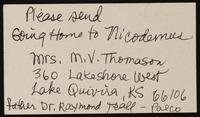 Please send
Going Home to Nicodemus
Mrs. M.V. Thomason
360 Lakeshore West
Lake Quivira, KS 66106
Father Dr. Raymond